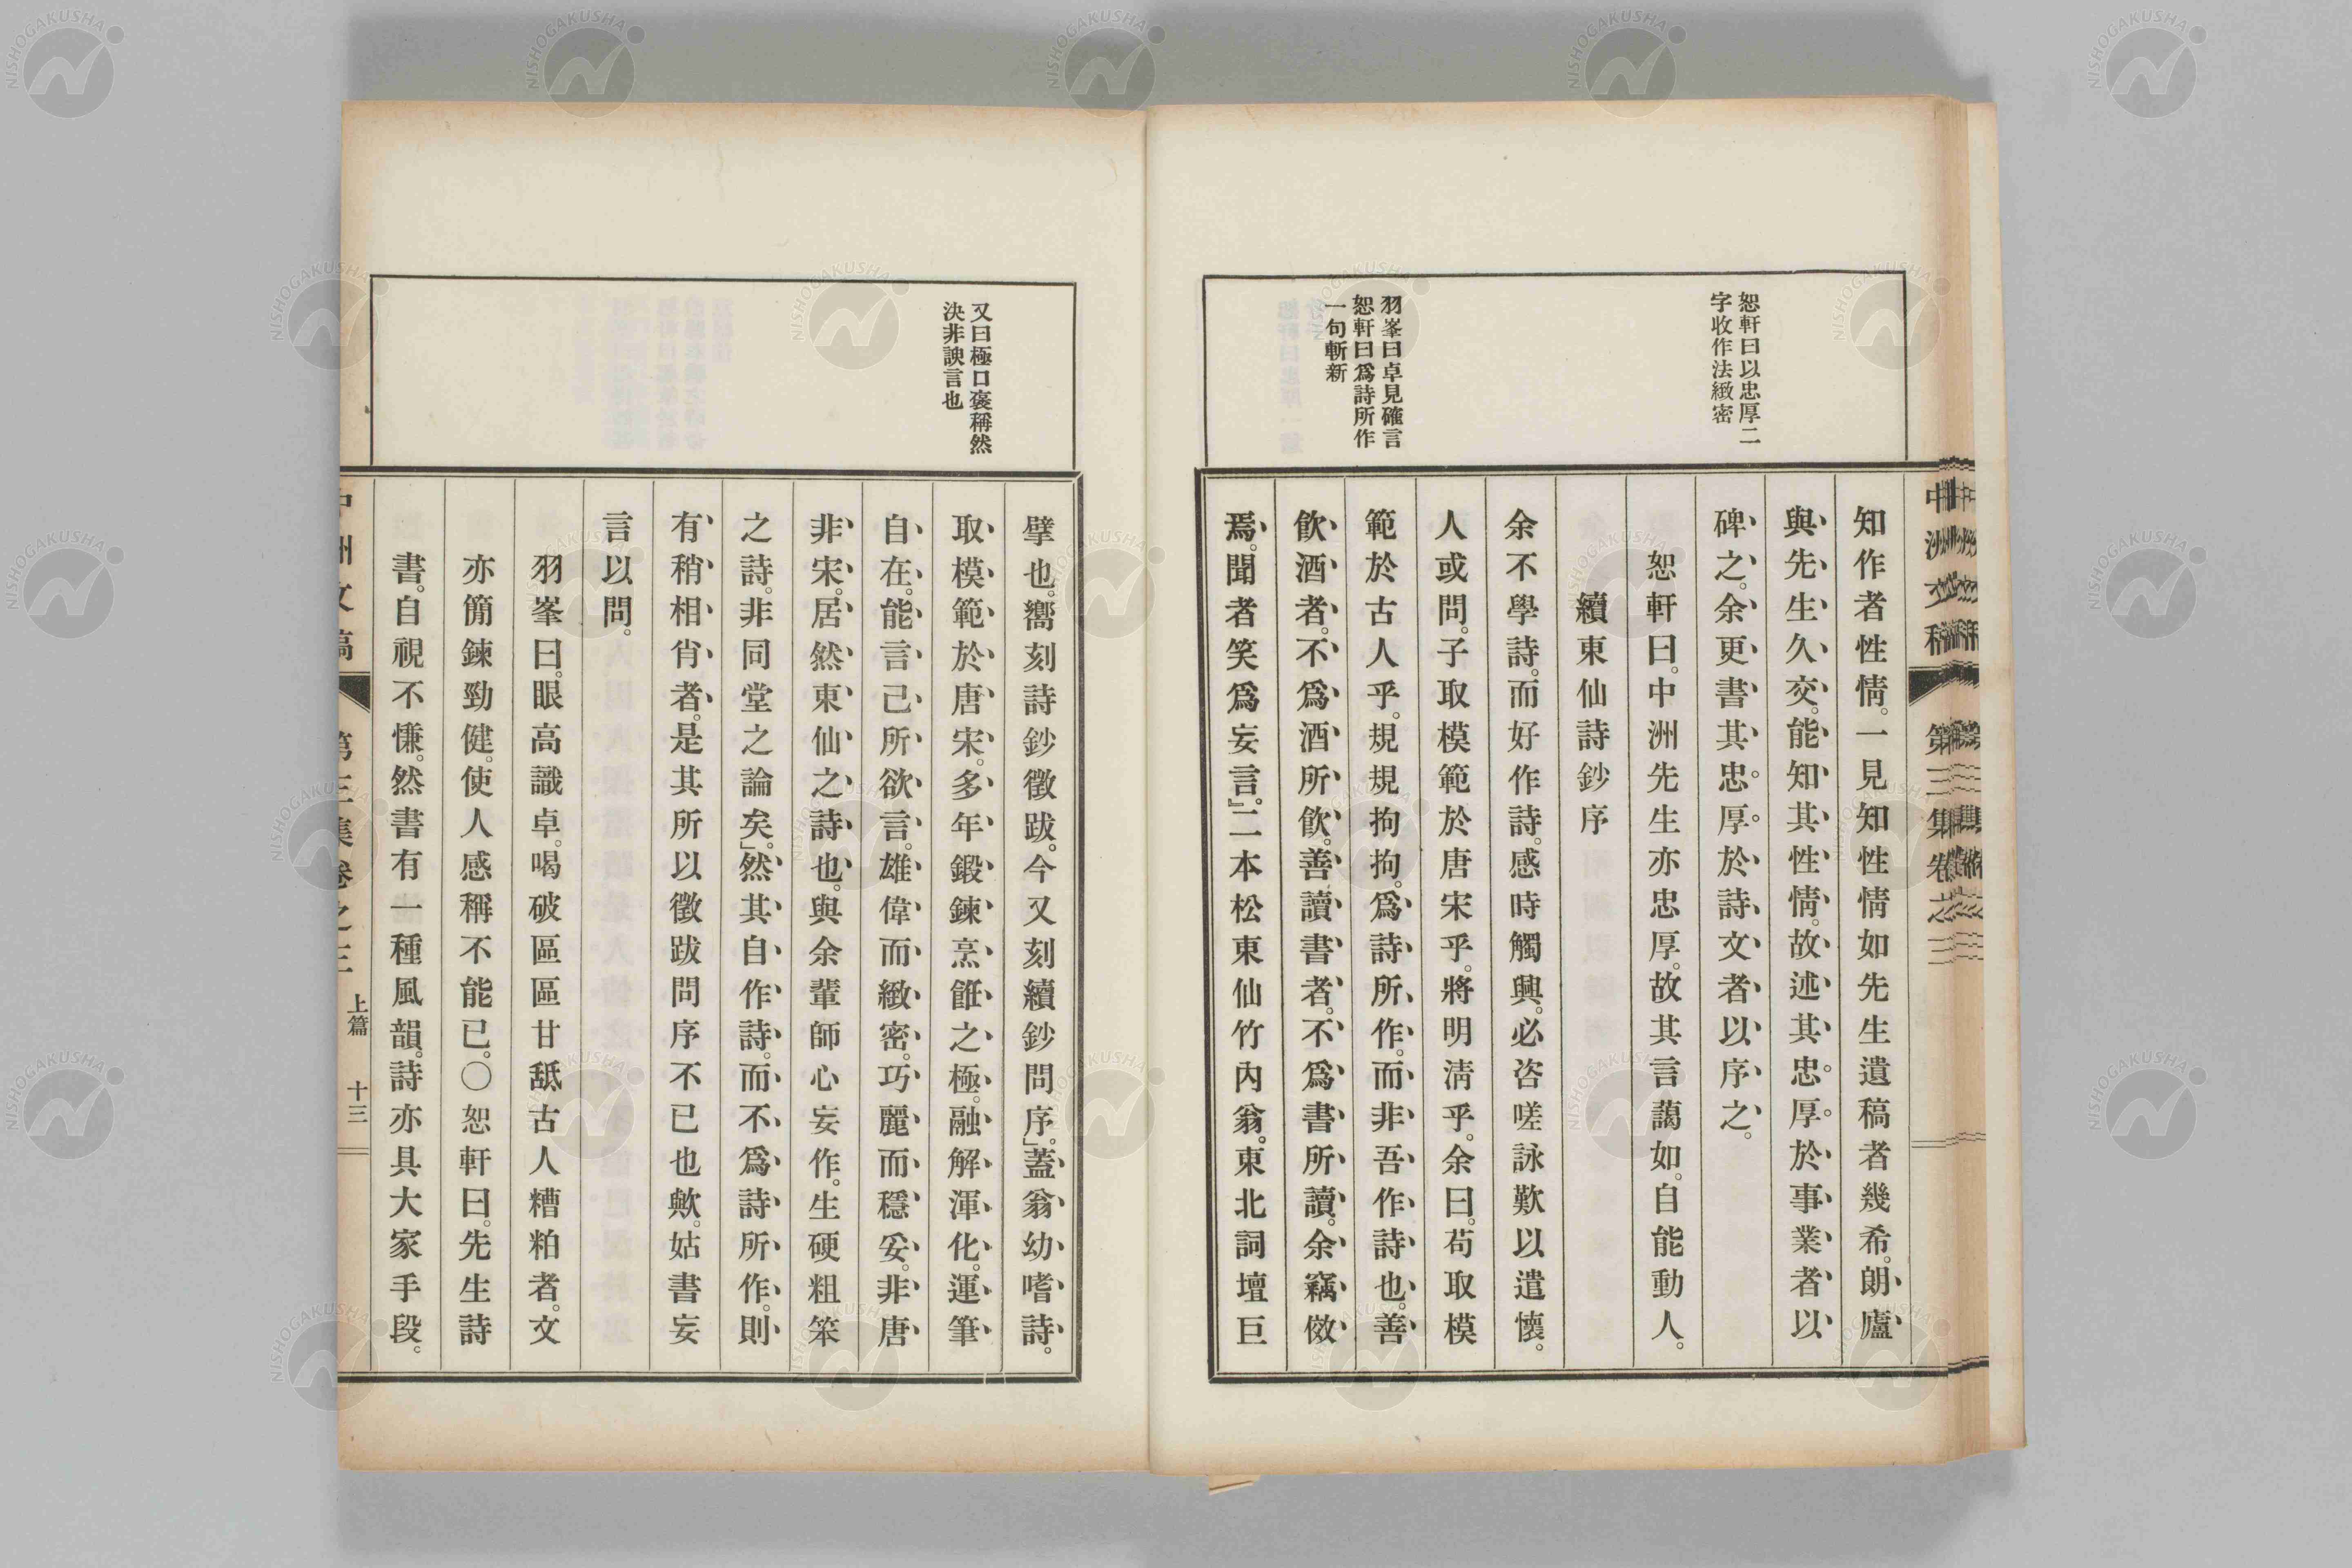 恕軒曰以忠厚二
字收作法緻密
羽峯曰卓見確言
恕軒曰爲詩所作
一句斬新
知作者性情。一見知性情如先生遺稿者幾希。朗廬
與先生久交。能知其性情。故述其忠厚於事業者以
碑之。余更書其忠厚於詩文者以序之。
恕軒曰。中洲先生亦忠厚。故其言藹如。自能動人。
續東仙詩鈔序
余不學詩。而好作詩。感時觸興。必咨嗟詠歎以遣懷。
人或問。子取模範於唐宋乎。將明清乎。余曰。苟取模
範於古人乎。規規拘拘。爲詩所作。而非吾作詩也。善
飮酒者。不爲酒所飮。善讀書者。不爲書所讀。余竊倣
焉。聞者笑爲妄言。』二本松東仙竹內翁。東北詞壇巨
中洲文稿 第三集卷之三
又曰極口褒稱然
決非諛言也
擘也。嚮刻詩鈔徵跋。今又刻續鈔問序。』蓋翁幼嗜詩。
取模範於唐宋。多年鍛鍊烹飪之極。融解渾化。運筆
自在。能言己所欲言。雄偉而緻密。巧麗而穩妥。非唐
非宋。居然東仙之詩也。與余輩師心妄作。生硬粗笨
之詩。非同堂之論矣。』然其自作詩。而不爲詩所作。則
有稍相肖者。是其所以徵跋問序不已也歟。姑書妄
言以問。
羽峯曰。眼高識卓。喝破區區甘舐古人糟粕者。文
亦簡鍊勁健。使人感稱不能已。〇恕軒曰。先生詩
書。自視不慊。然書有一種風韻。詩亦具大家手段。
中洲文稿 第三集卷之三 上篇 十三